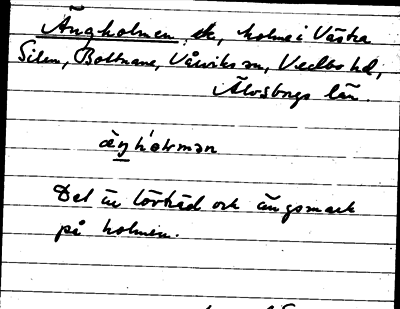 Ängholmen, ek, holme i Västra
Silen, Bottnane, Vårviks sn, Vedbo hd,
Älvsborgs län.
äŋhɷrmən
Det är lövträd och ängsmark
på holmen.